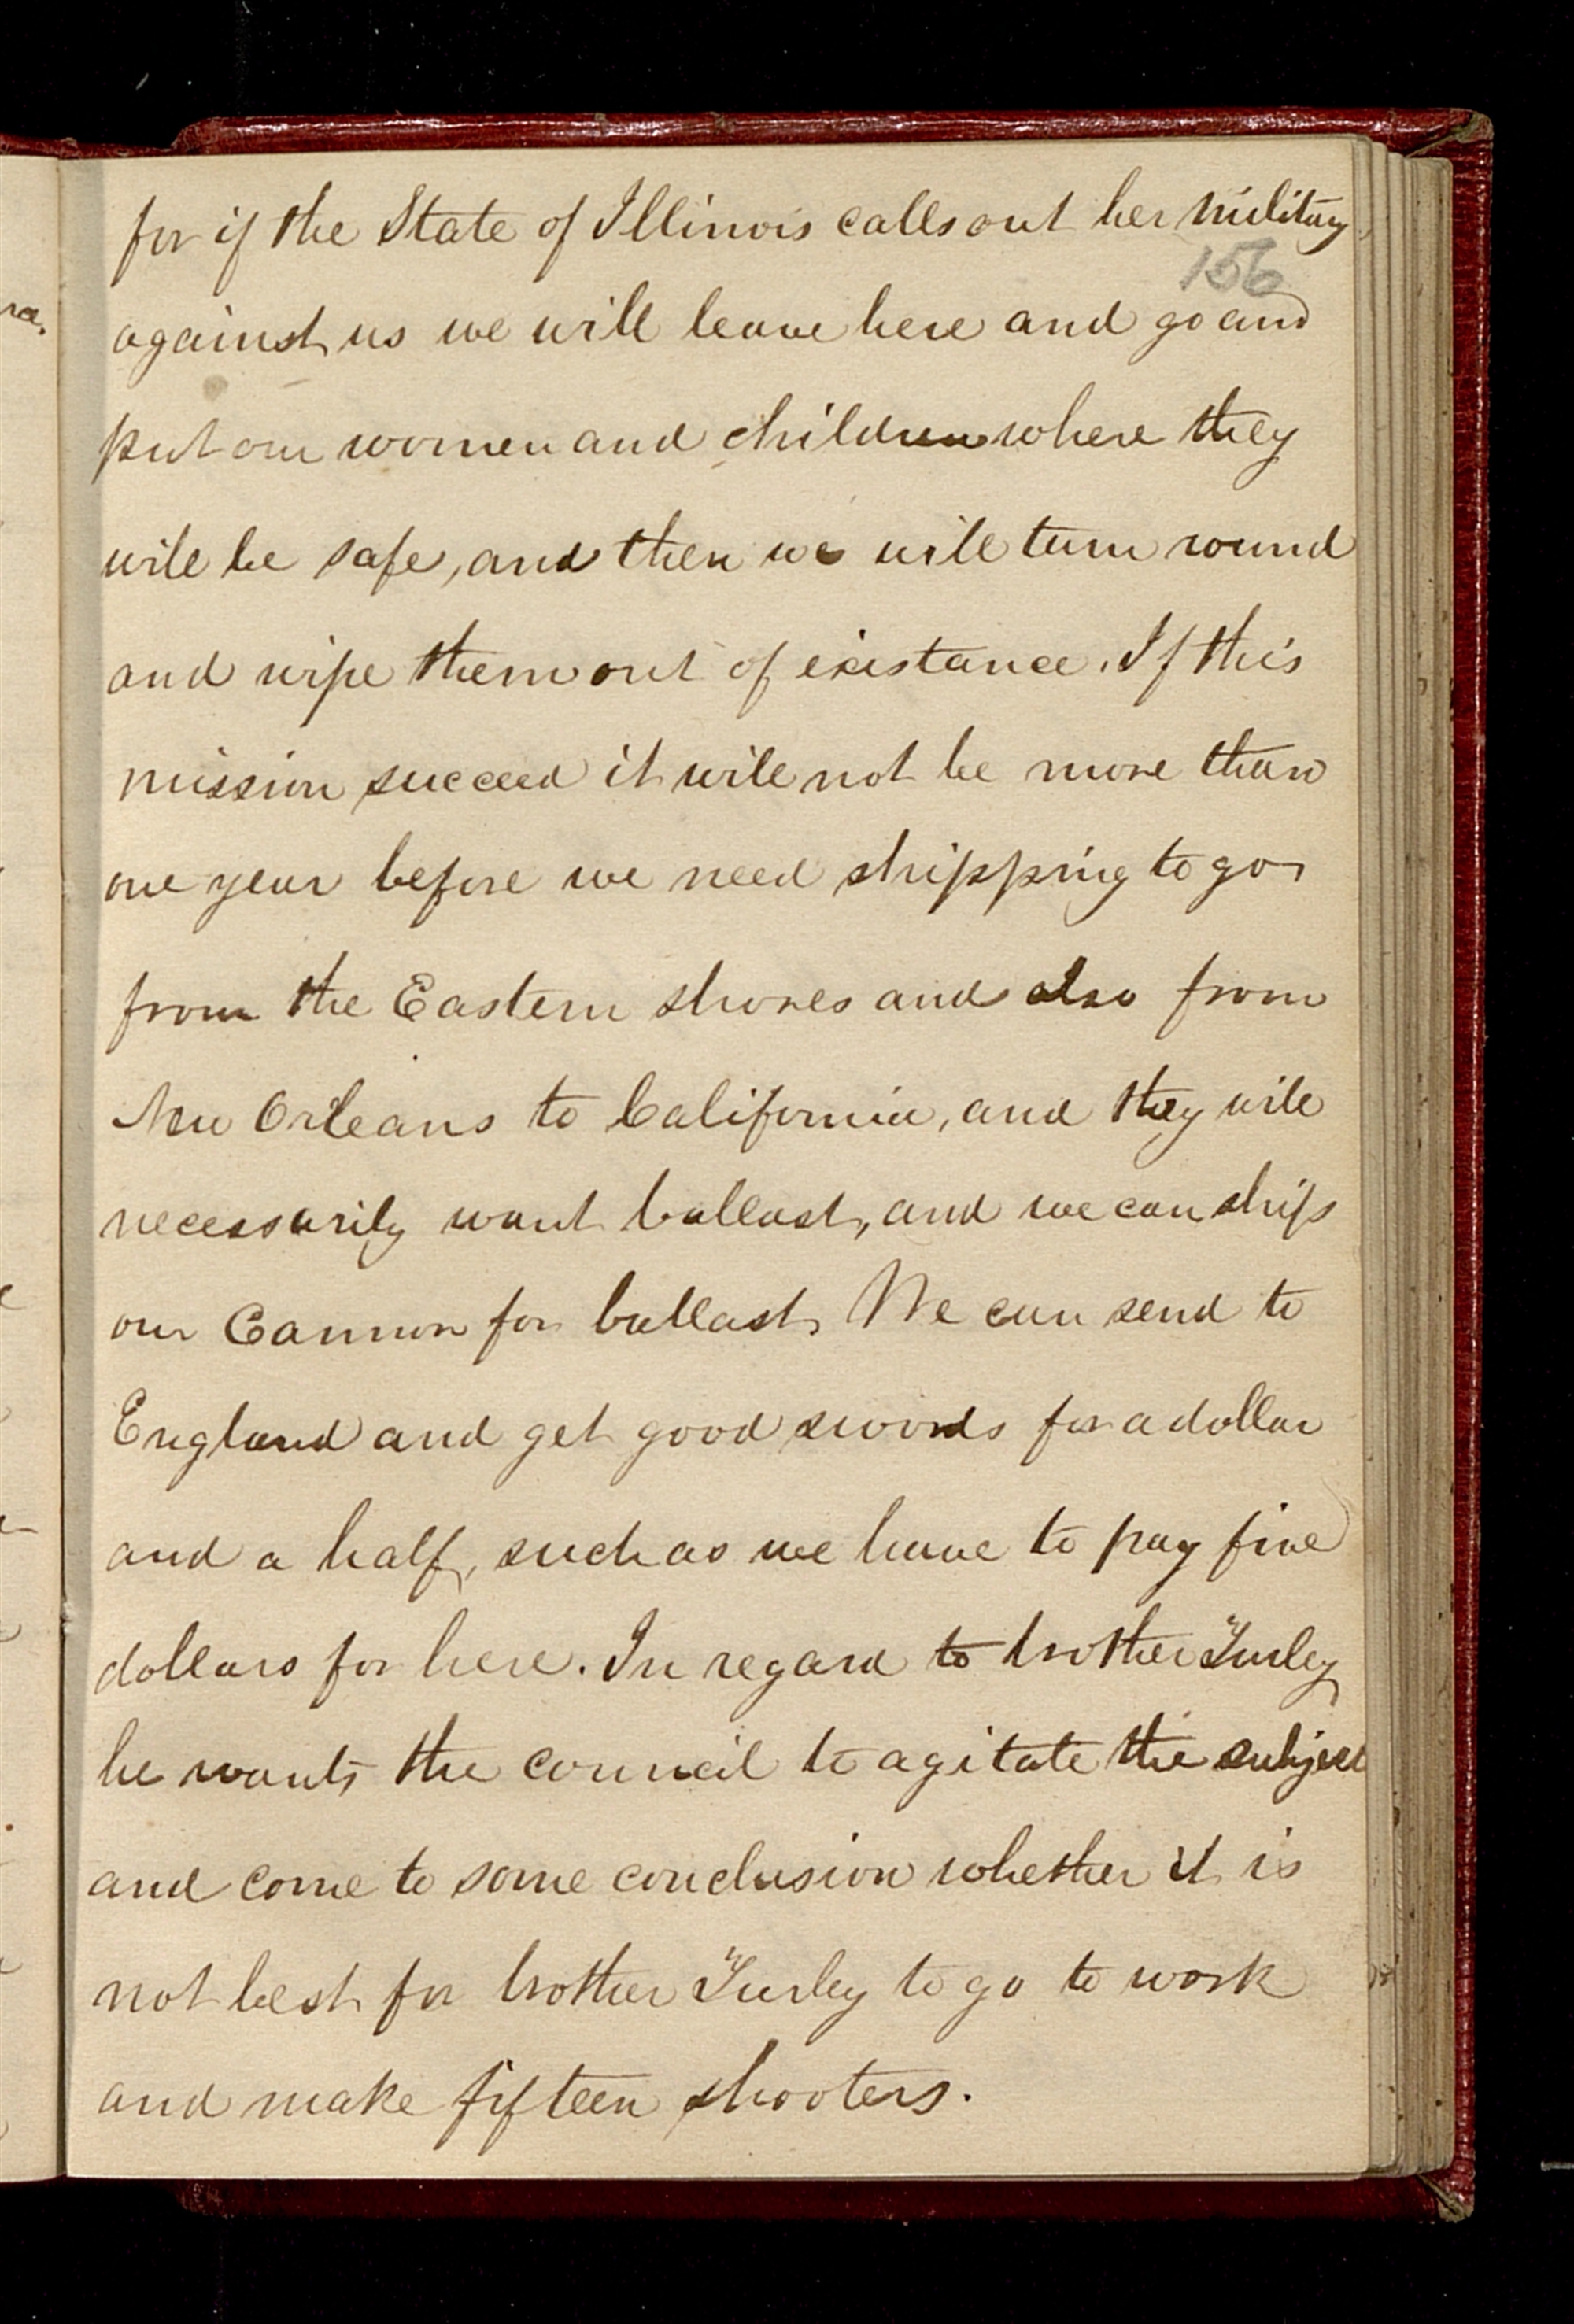 for if the State of Illinois calls out her military
156
against us we will leave here and go and
put our women and children where they
will be safe, and then we will turn round
and wipe them out of existance. If this
mission succeed it will not be more than
one year before we need shipping to go
from the Eastern shores and also from
New Orleans to California, and they will
necessarily want ballast, and we can ship
our Cannon for ballast. We can send to
England and get good swords for a dollar
and a half, such as we have to pay five
dollars for here. In regard to brother Turley
he wants the council to agitate the subject
and come to some conclusion whether it is
not best for brother Turley to go to work
and make fifteen shooters.